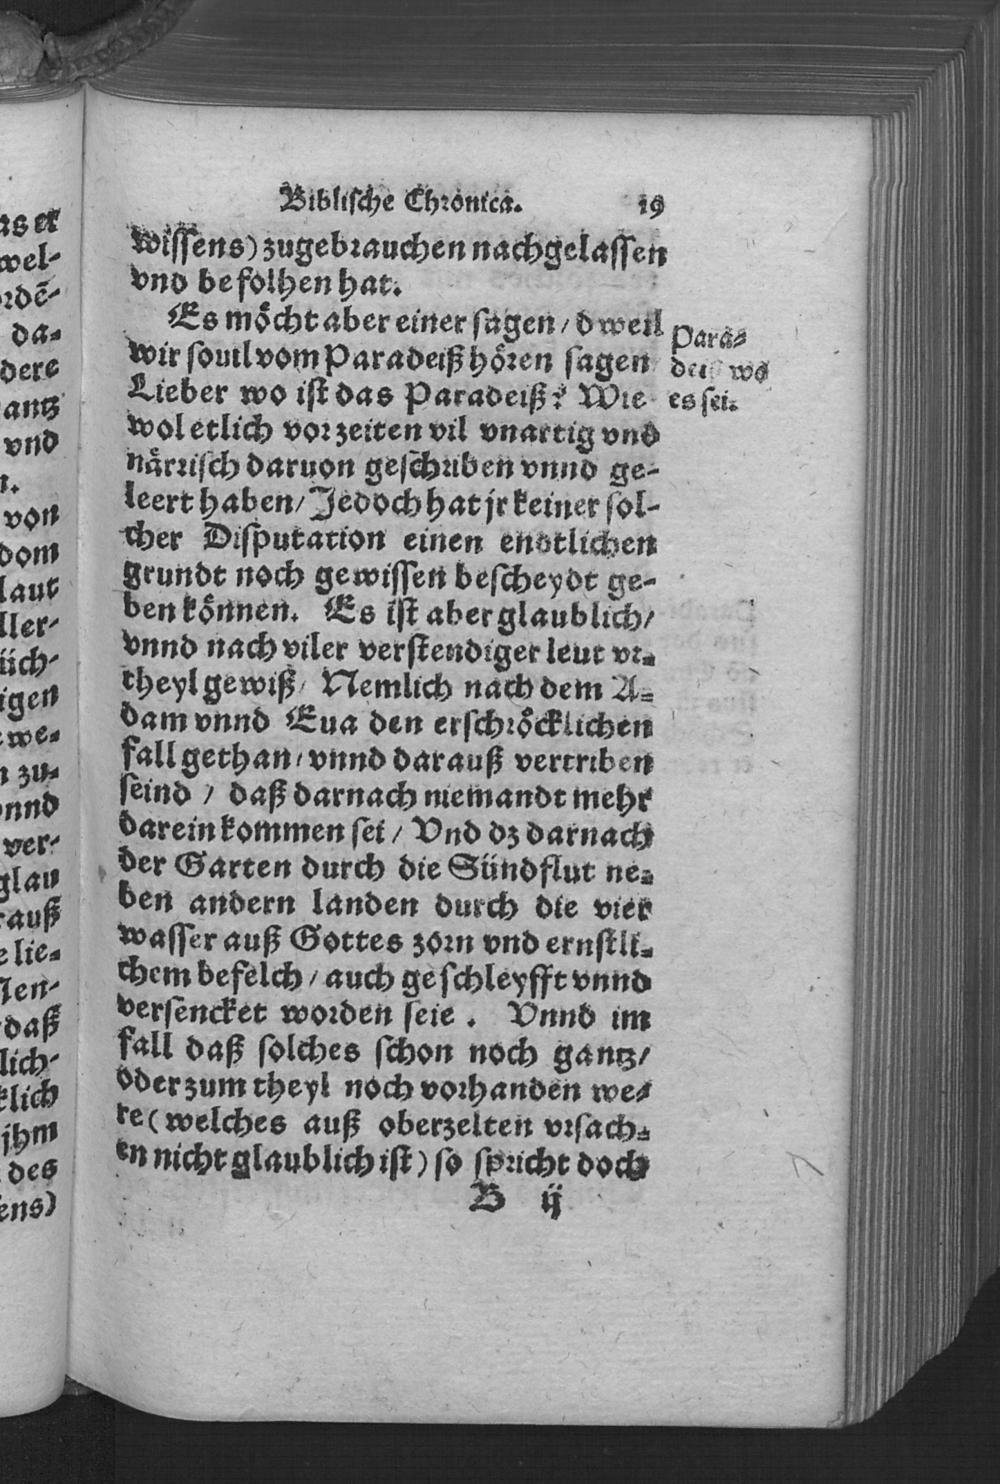 Biblische Chronica. 19
wissens) zugebrauchen nachgelassen
vnd befolhen hat.
Es möcht aber einer sagen / dweil
wir souil vom Paradeiß hören sagen
Lieber wo ist das Paradeiß? Wie
wol etlich vorzeiten vil vnartig vnd
närrisch daruon geschriben vnnd ge-
leert haben / Jedoch hat jr keiner sol-
cher Disputation einen endtlichen
grundt noch gewissen bescheydt ge-
ben können. Es ist aber glaublich /
vnnd nach viler verstendiger leut vr-
theyl gewiß / Nemlich nach dem A-
dam vnnd Eua den erschröcklichen
fall gethan / vnnd darauß vertriben
seind / daß darnach niemandt mehr
darein kommen sei / Vnd dz darnach
der Garten durch die Sündflut ne-
ben andern landen durch die vier
wasser auß Gottes zorn vnd ernstli-
chem befelch / auch geschleyfft vnnd
versencket worden seie. Vnnd im
fall daß solches schon noch gantz /
oder zum theyl noch vorhanden we-
re (welches auß oberzelten vrsach-
en nicht glaublich ist) so spricht doch
B ij
Para-
deiß wo
es sei.
as er
wel-
ordē-
da-
dere
antz
vnd
von
dom
laut
ller-
üch-
igen
we-
zu-
vnnd
ver-
glau
rauß
e lie-
len-
daß
lich-
klich
jhm
des
ens)